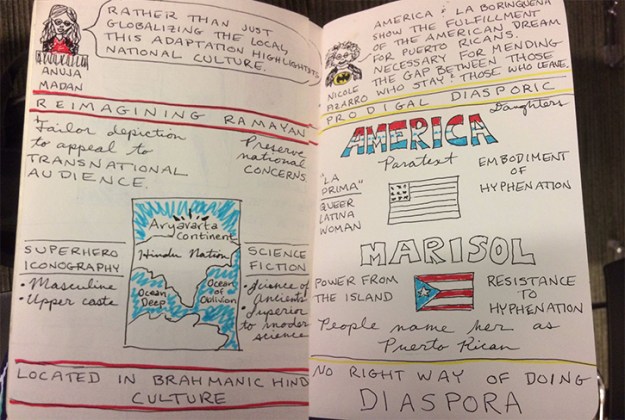 RATHER THAN JUST
GLOBALIZING THE LOCAL,
THIS ADAPTATION HIGHLIGHTS
NATIONAL CULTURE.
ANUJA
MADAN
REIMAGINING RAMAYAN
Tailor depiction
to appeal to
TRANSNATIONAL
AUDIENCE.
Preserve
national
CONCERNS.
Aryavarta
Continent
Hindu Nation
Ocean
Deep
Ocean
of
Oblivion
SUPERHERO
ICONOGRAPHY
• Masculine
• Upper caste
SCIENCE
FICTION
• Science of
ancients
superior
to modern
science
LOCATED IN BRAHMANIC HIND
CULTURE
AMERICA & LA BORINQUENA
SHOW THE FULFILLMENT
OF THE AMERICAN DREAM
FOR PUERTO RICANS.
NECESSARY FOR MENDING
THE GAP BETWEEN THOSE
WHO STAY & THOSE WHO LEAVE.
NICOLE
PIZARRO
PRODIGAL DIASPORIC
Daughters
AMERICA
Paratext
"LA
PRIMA"
QUEER
LATINA
WOMAN
EMBODIMENT
OF
HYPHENATION
MARISOL
POWER FROM
THE ISLAND
RESISTANCE
TO
HYPHENATION
People name her as
Puerto Rican
NO RIGHT WAY OF DOING
DIASPORA